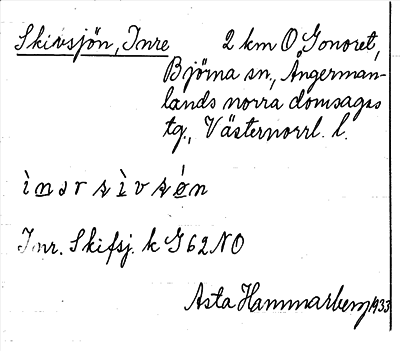 Skivsjön, Inre 2 km O Gonoret,
Björna sn., Ångerman-
lands norra domsagas
tg., Västernorrl. l.
ìnər sìvsøn
Inr. Skifsj. k G 62 NO
Asta Hammarberg 1933